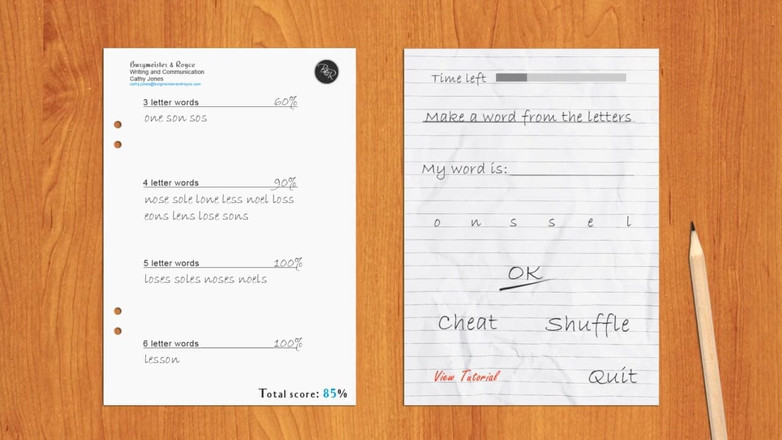 Burgmeister & Royce
Writing and Communication
Cathy Jones
B&R
3 letter words 60%
one son sos
4 letter words 90%
nose sole lone less noel loss
eons lens lose sons
5 letter words 100%
loses soles noses noels
6 letter words 100%
lesson
Total score: 85%
Time left
Make a word from the letters
My word is:
o n s s e l
OK
Cheat Shuffle
View Tutorial Quit